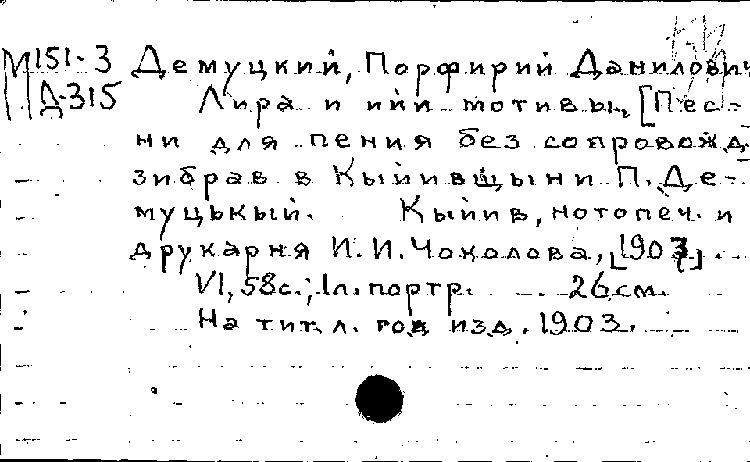 М151-3 Демуцкий, Порфирий Данилович
Д-315 Лира и ийи мотивы, [Пес-
ни для пения без сопровожд
зибрав в Кыйивщыни П. Де-
муцькый. Кыйив, нотопеч. и
друкарня И. И. Чоколова, [1907].
VI, 58с.; 1л. портр. 26см.
На тит. л. год изд. 1903.